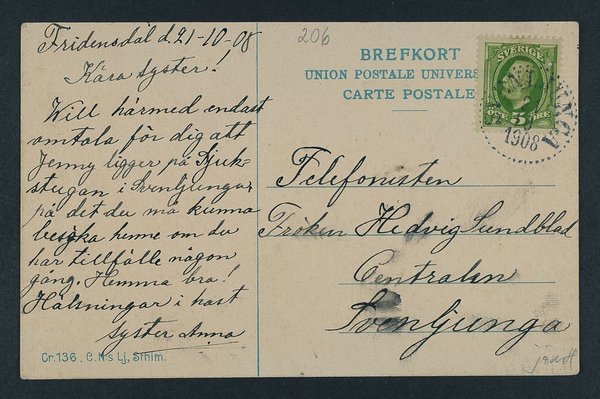 Fridensdal d. 21-10-08
Kära syster!
Will härmed endast
omtala för dig att
Jenny ligger på Sjuk-
stugan i Svenljunga
på det du må kunna
besöka henne om du
har tillfälle någon
gång. Hemma bra!
Hälsningar i hast
syster Anna
Gr. 136. C. N:s Lj, Sthlm.
206
BREFKORT
UNION POSTALE UNIVERS
CARTE POSTALE
SVERIGE
5 ÖRE
1908
Telefonisten
Fröken Hedvig Sundblad
Centralen
Svenljunga